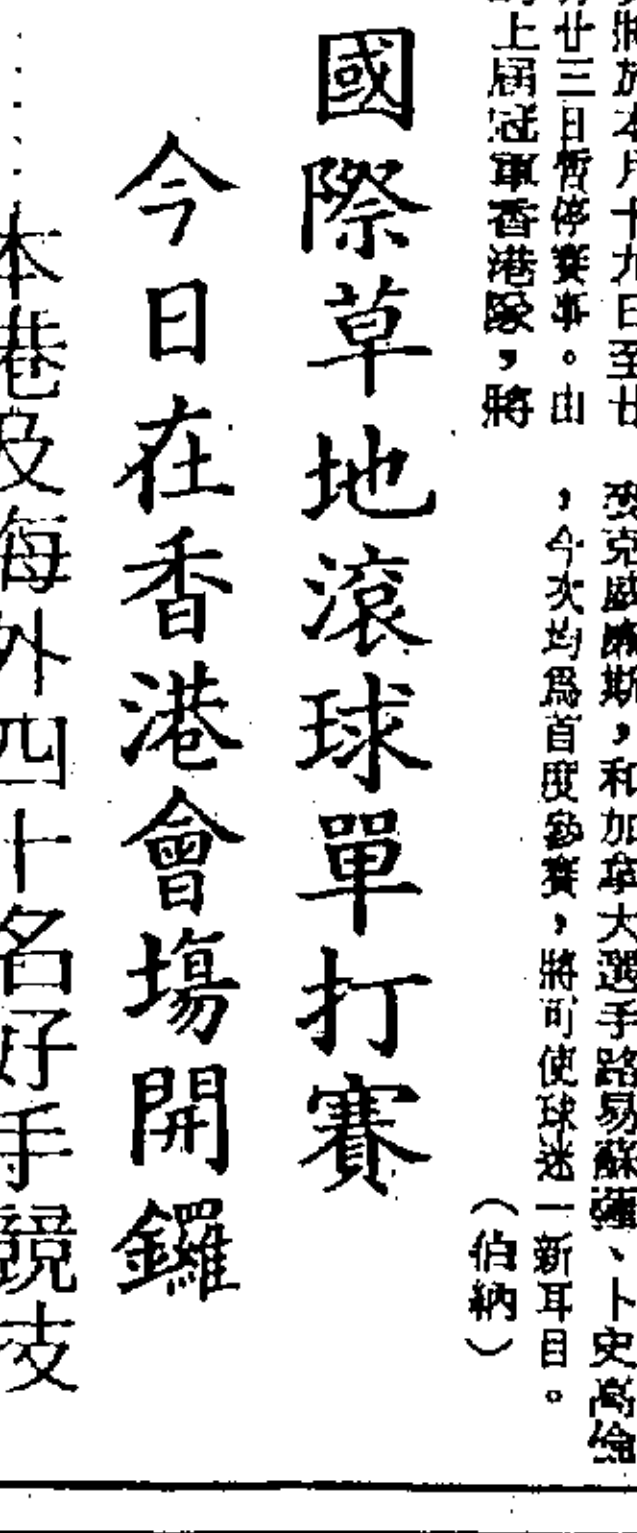 將於本月十九日至廿
廿三日暫停賽事。由
上屆冠軍香港隊，將
麥克威廉斯，和加拿大選手路易蘇彊、卜史高倫
，今次均爲首度參賽，將可使球迷一新耳目。
（伯納）
國際草地滾球單打賽
今日在香港會塲開鑼
本港及海外四十名好手競技